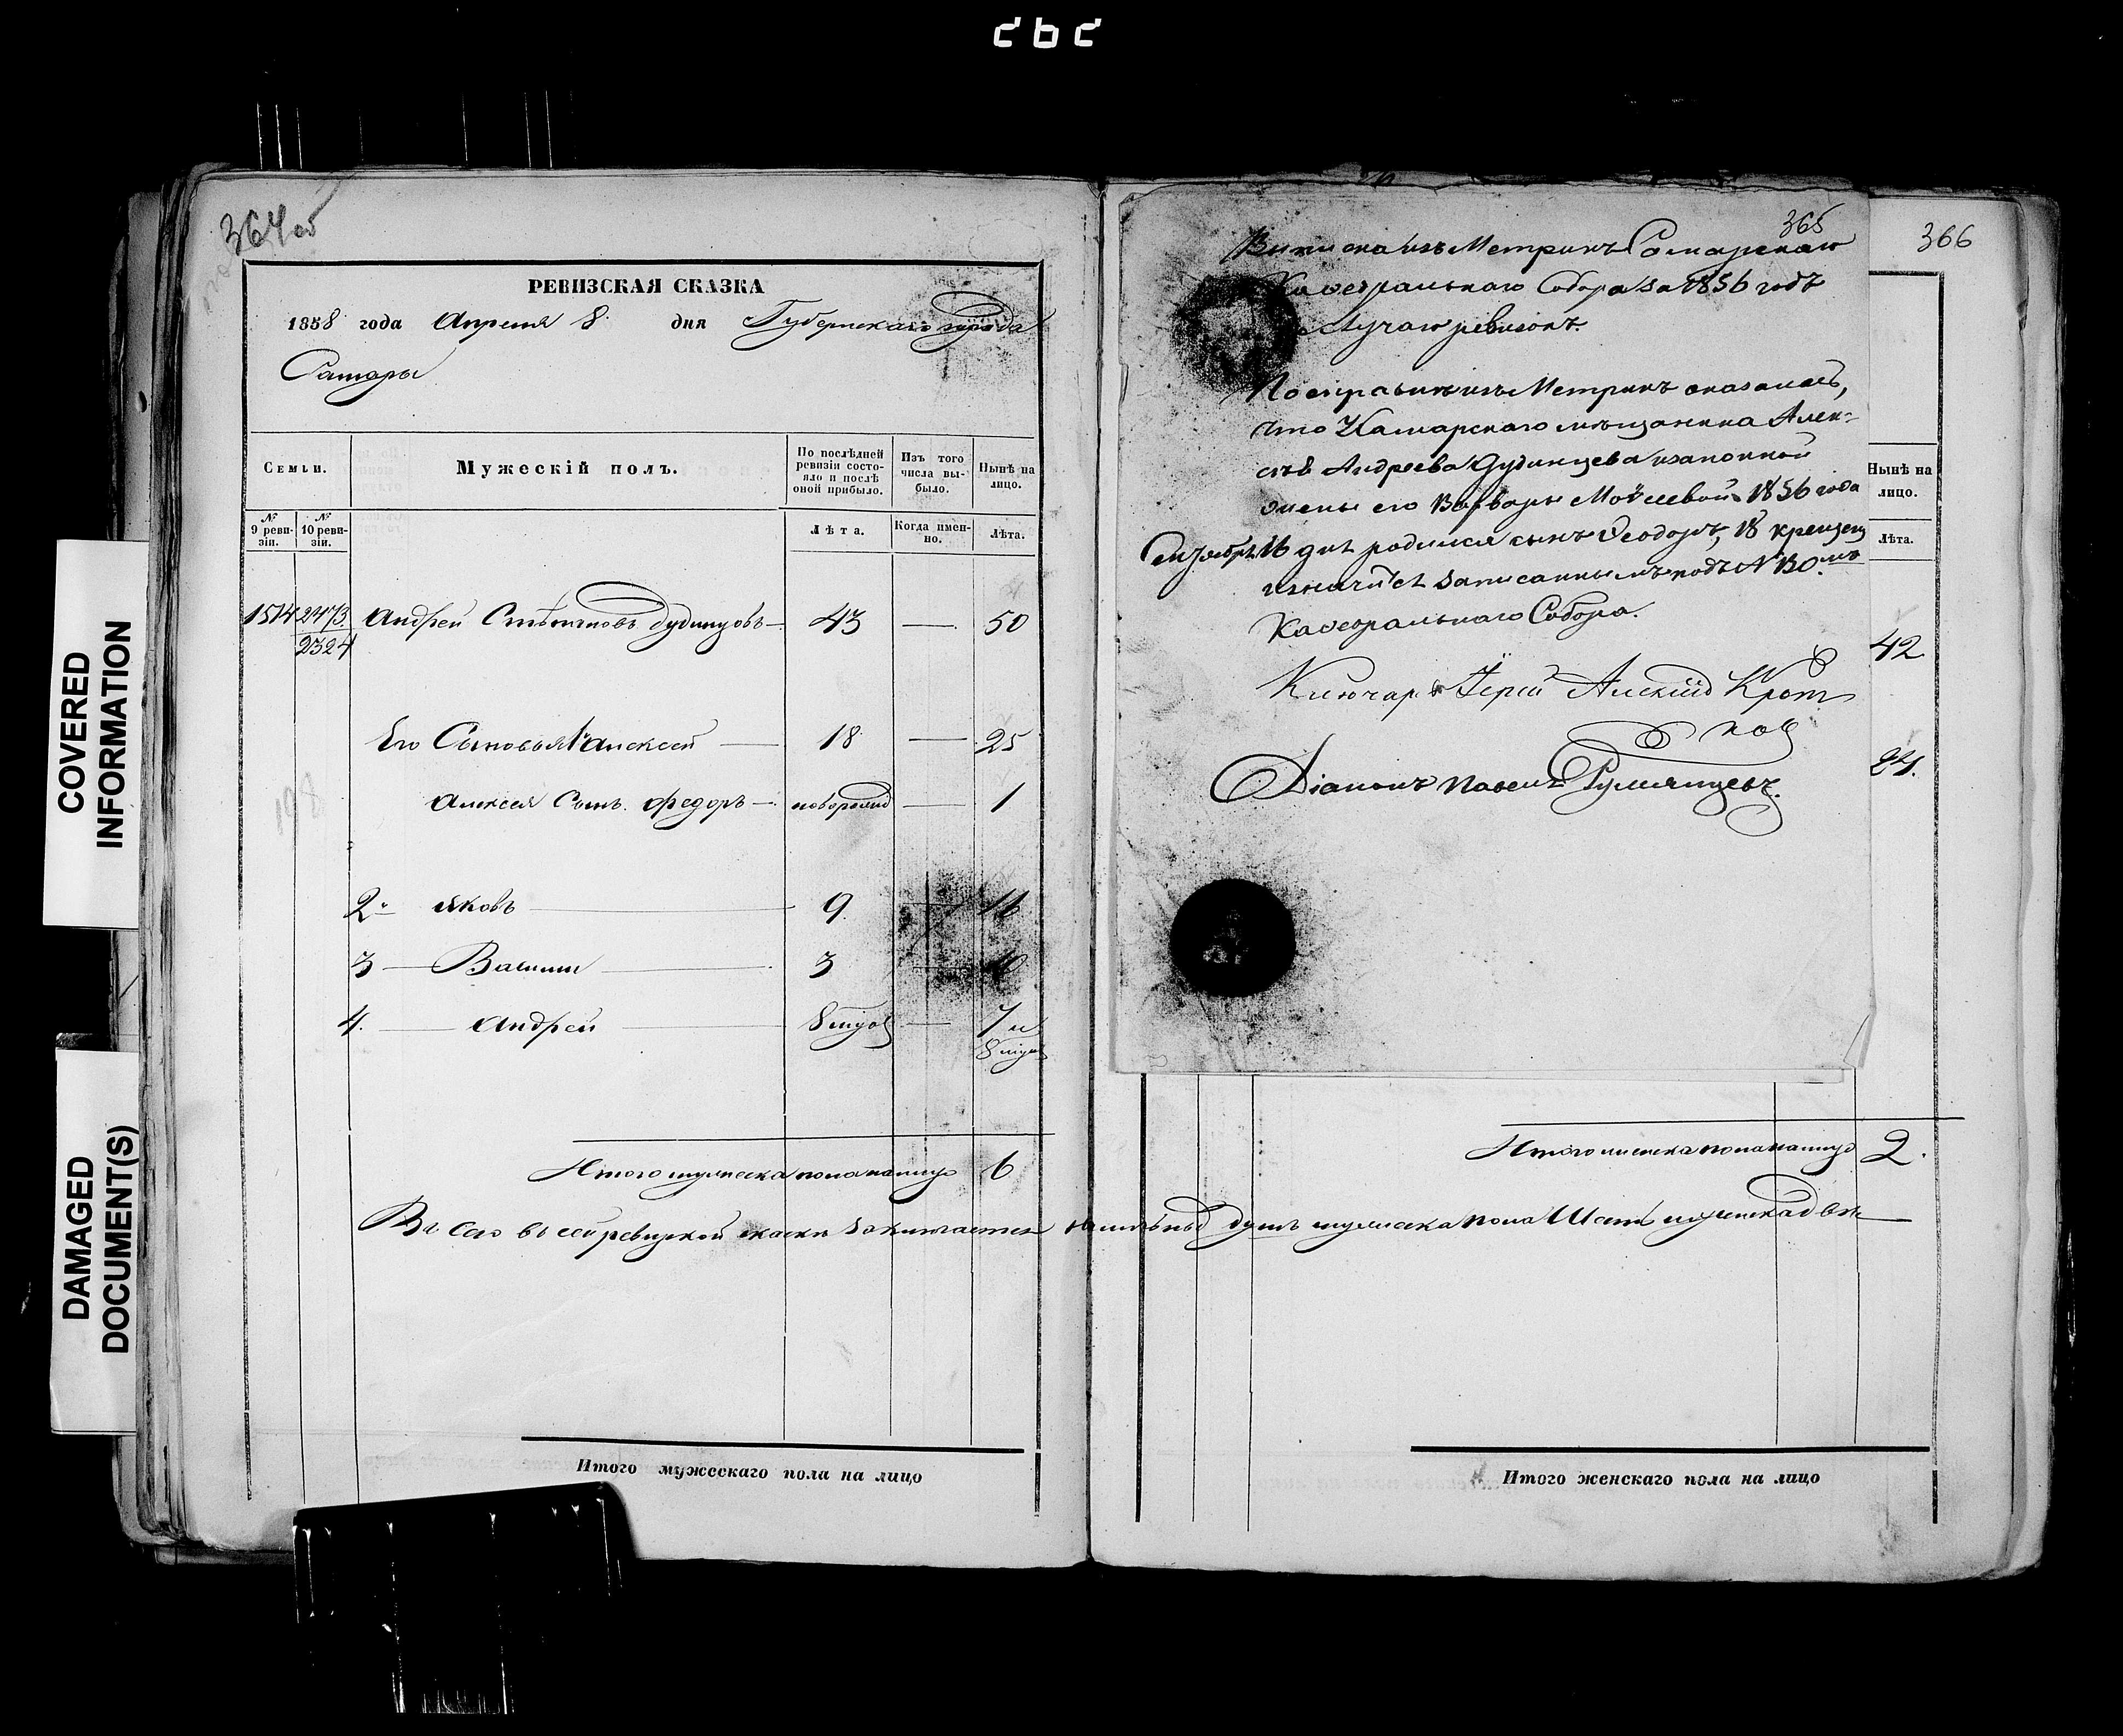 364об
РЕВИЗСКАЯ СКАЗКА
1858 года Апреля 8 дня Губернскаго города
Самары
Семьи.
Мужескій полъ.
По послѣдней ревизіи состояло и послѣ оной прибыло.
Изъ того числа выбыло.
Нынѣ на лицо.
№ 9 ревизіи.
№ 10 ревизіи.
Лѣта.
Когда именно.
Лѣта.
1514 2473. Андрей Степановъ Дудинцовъ 43 — 50
2324
Его Сыновья 1й Алексей — 18 — 25
Алексея Сынъ Федоръ — новорожд — 1
2. Яковъ 9. 16
3 — Василий 3 10
4. — Андрей 8 — 7 и
8
Итого мужеска пола налицо 6
Въ сей ревизской скаске заключается душъ мужеска пола Шесть женска две
Итого мужескаго пола на лицо
365
Выписка изъ Метрикъ Самарскаго
Каѳедральнаго Собора за 1856 годъ
случаю ревизскъ
По справкѣ изъ Метрикъ оказалось,
что Самарскаго мещанина Алек-
сѣя Андреева Дудинцева изаконной
жены его Варвары Моисевой 1856 года
Сентября 16 дня родился сынъ Ѳеодоръ, 18 крещенъ
записаннымъ подъ № 130.мъ
Каѳедральнаго Собора.
Ключарь Іерей Алексій Крот
ков
Діаконъ Павелъ Румянцевъ.
366
Нынѣ на лицо.
Лѣта.
42
24.
Итого женска пола налицо 2.
Итого женскаго пола на лицо
COVERED INFORMATION
DAMAGED DOCUMENT(S)